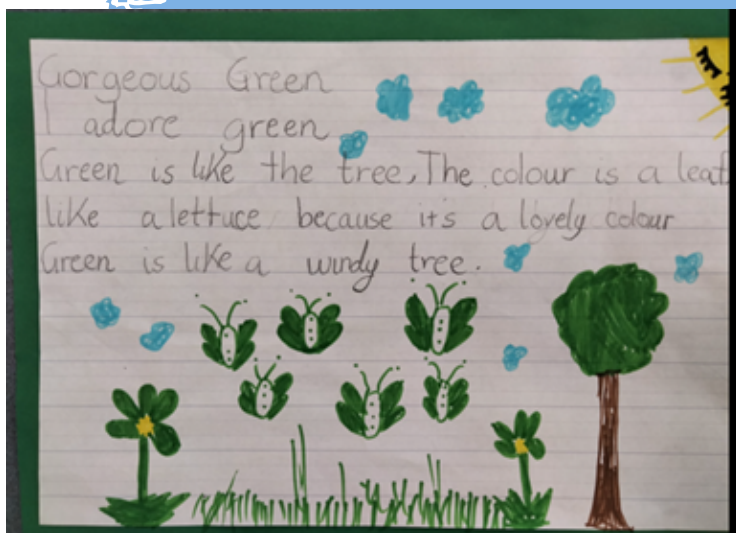 Gorgeous Green
I adore green
Green is like the tree, The colour is a leaf
like a lettuce because it's a lovely colour
Green is like a windy tree.